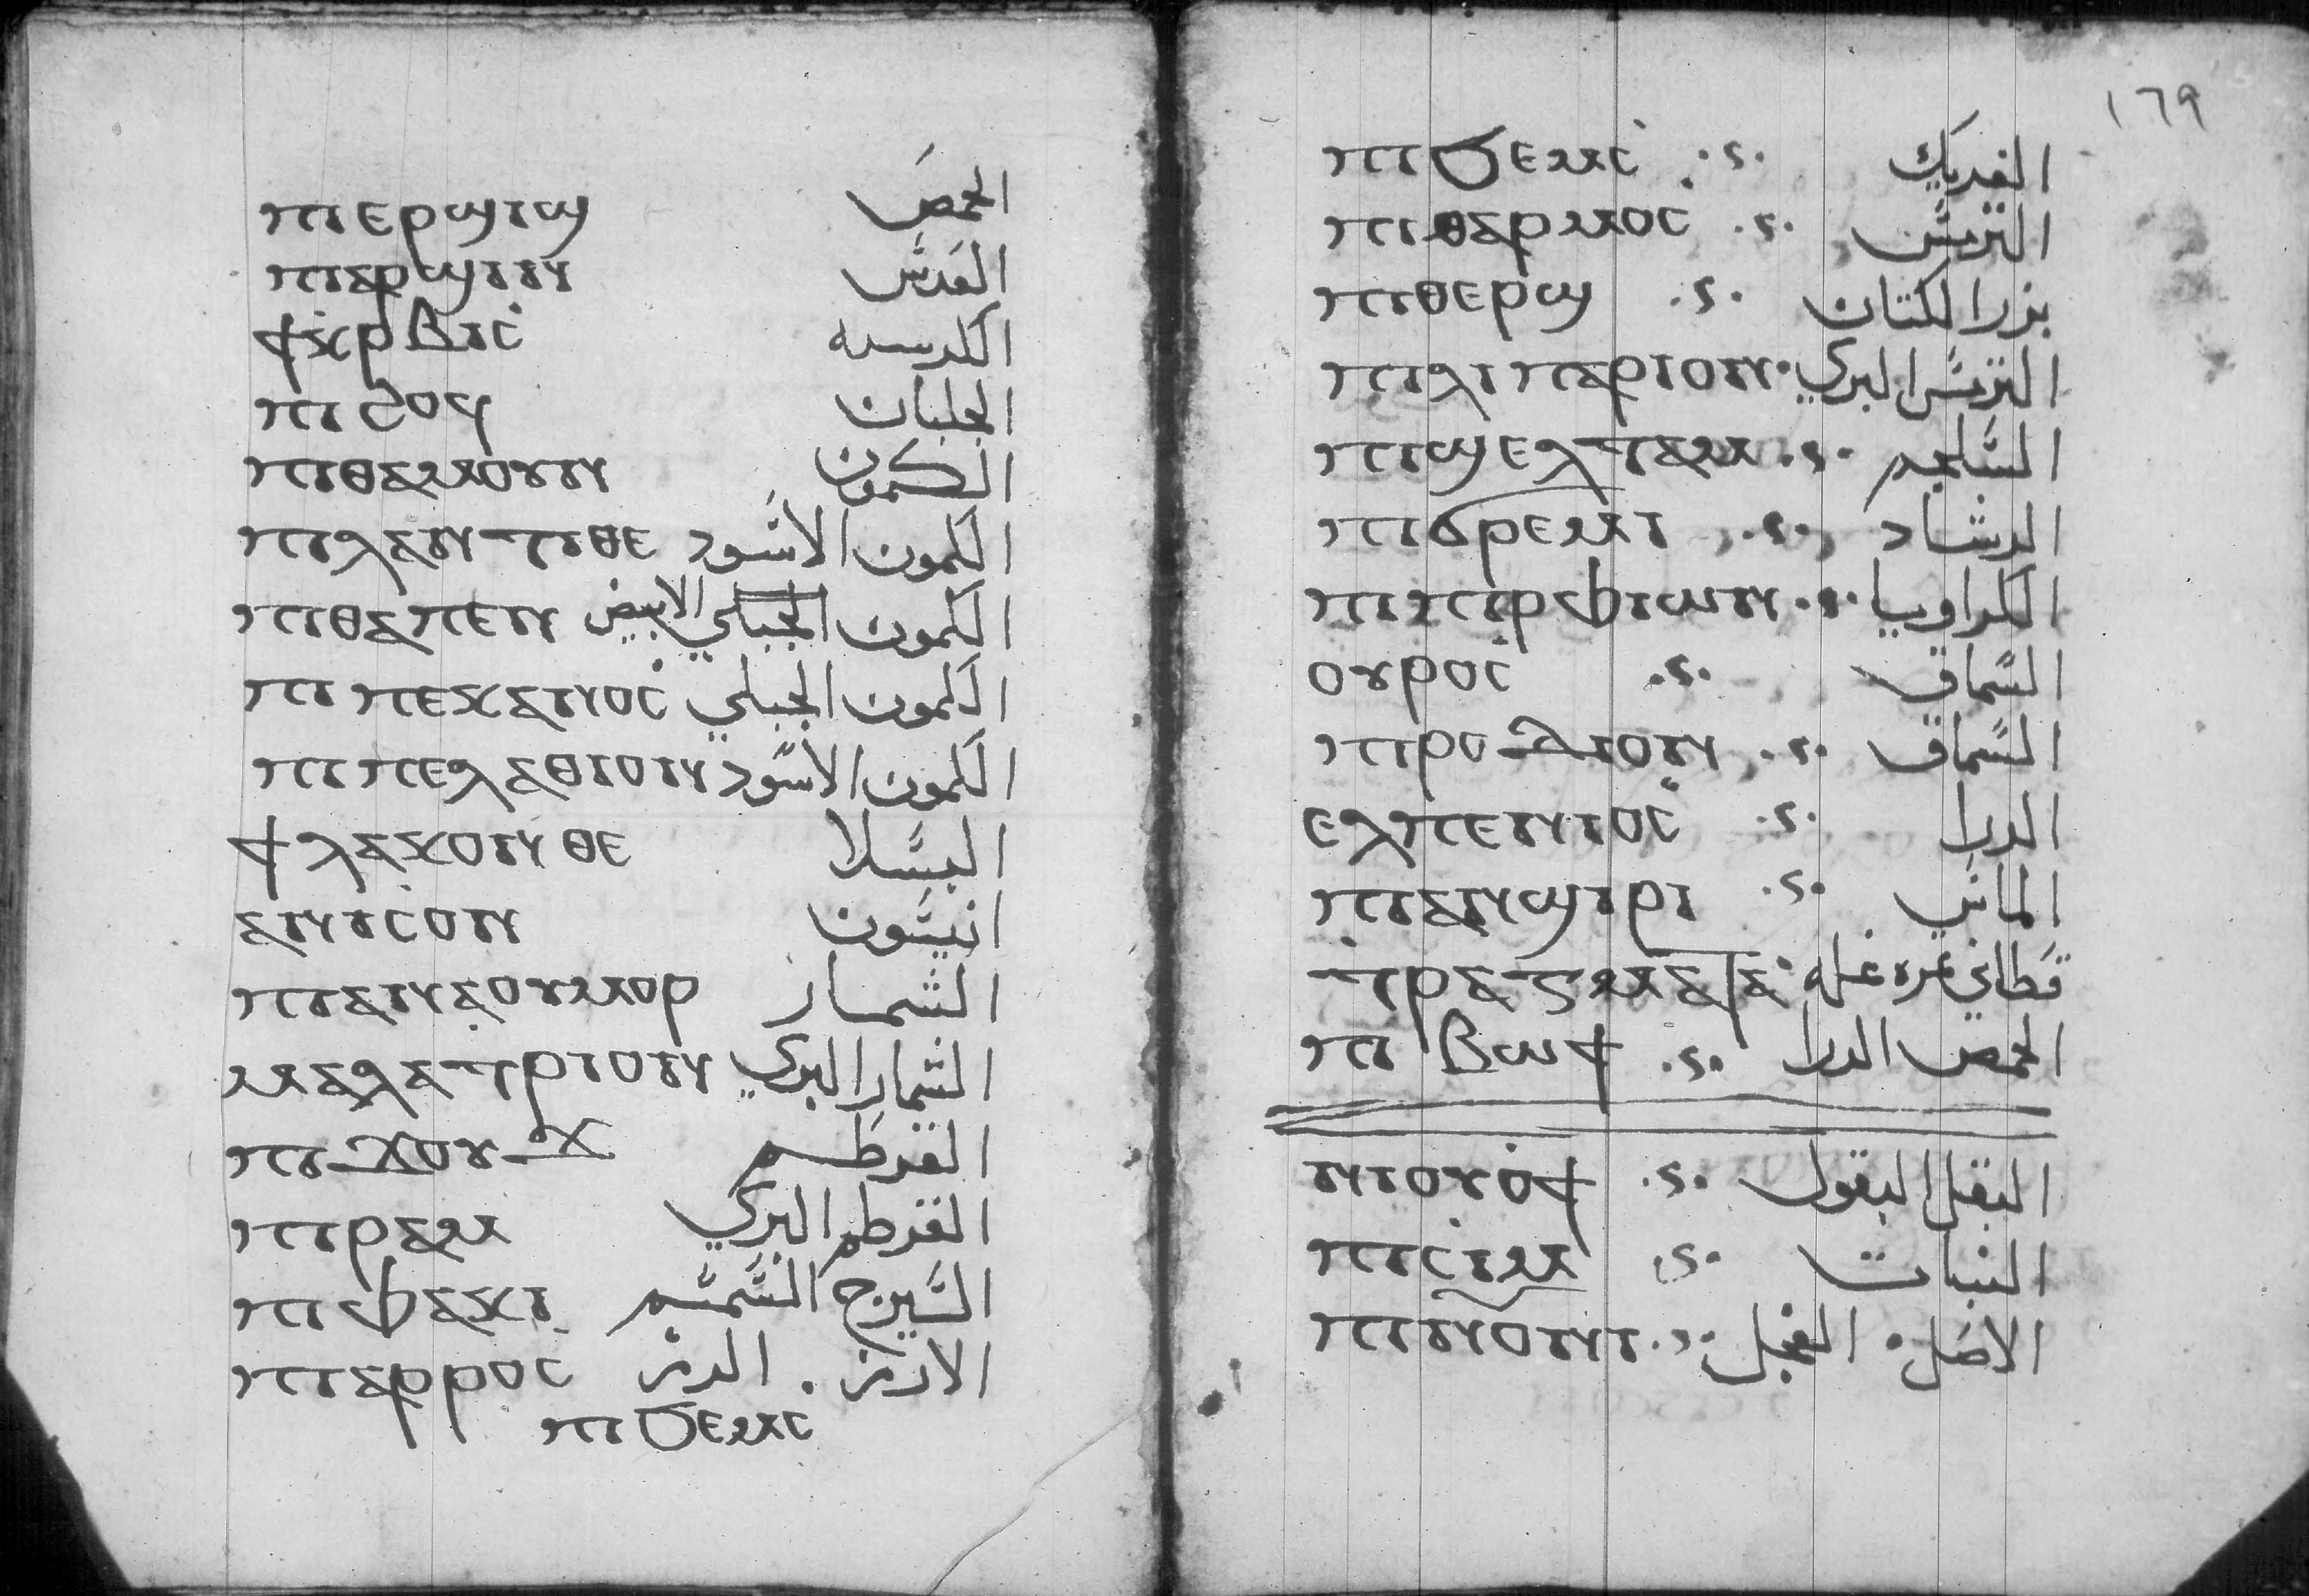 ⲡⲉⲣϣⲓϣ الحمص
ⲡⲓⲁⲣϣⲓⲛ العدس
ϯⲭⲣⲃⲓⲥ الكرسنه
ⲡⲓⳓⲟϥ الجلبان
ⲡⲓⲑⲁⲙⲟⲩⲛ الكمون
ⲡⲓⲗⲁⲛⲧⲓⲑⲉ الكمون الاسود
ⲡⲓⲑⲁⲡⲉⲛ الكمون الجبلي الابيض
ⲡⲓⲡⲉⲭⲁⲛⲟⲥ الكمون الجبلي
ⲡⲓⲡⲉⲗⲁⲑⲓⲟⲛ الكمون الاسود
ϯⲗⲁⲭⲟⲛⲑⲉ البسلا
ⲁⲛⲓⲥⲟⲛ انيسون
ⲡⲓⲁⲛⲁⲟⲩⲙⲟⲣ الشمار
ⲙⲁⲗⲁⲧⲣⲓⲟⲛ الشمار البري
ⲡⲓϫⲟⲩϫ القرطم
ⲡⲓⲣⲁⲙ القرطم البري
ⲡⲓⲫⲁⲭⲓ السيرج السمسم
ⲡⲓⲁⲣⲣⲟⲥ الارز . الرز
ⲡⲓϭⲉⲙⲥ
١٦٩
ⲡⲓϭⲉⲙⲥ الفريك
ⲡⲓⲑⲁⲣⲙⲟⲥ الترمس
ⲡⲓⲑⲉⲣϣ بزر الكتان
ⲡⲓⲗⲓⲡⲁⲣⲓⲟⲛ الترمس البري
ⲡⲓϣⲉⲗⲧⲁⲙ السلجم
ⲡⲓϭⲣⲉⲙⲓ الرشاد
ⲡⲓⲡⲣⲫⲓⲱⲛ الكراويا
ⲟⲩⲣⲟⲥ السماق
ⲡⲓⲣⲟⲇⲓⲟⲛ السماق
ⲉⲗⲡⲉⲛⲓⲟⲥ الدرا
ⲡⲓⲁⲛϣⲓⲣⲓ الماش
ⲧⲣⲁⲅⲙⲁⲧⲁ قطاني
ⲡⲓⲃⲱϯ الحمص الدرا
ⲛⲓⲟⲩⲟϯ البقل البقول
ⲡⲓⲥⲓⲙ النبات
ⲡⲓⲛⲟⲩⲛⲓ الاصل . الفجل